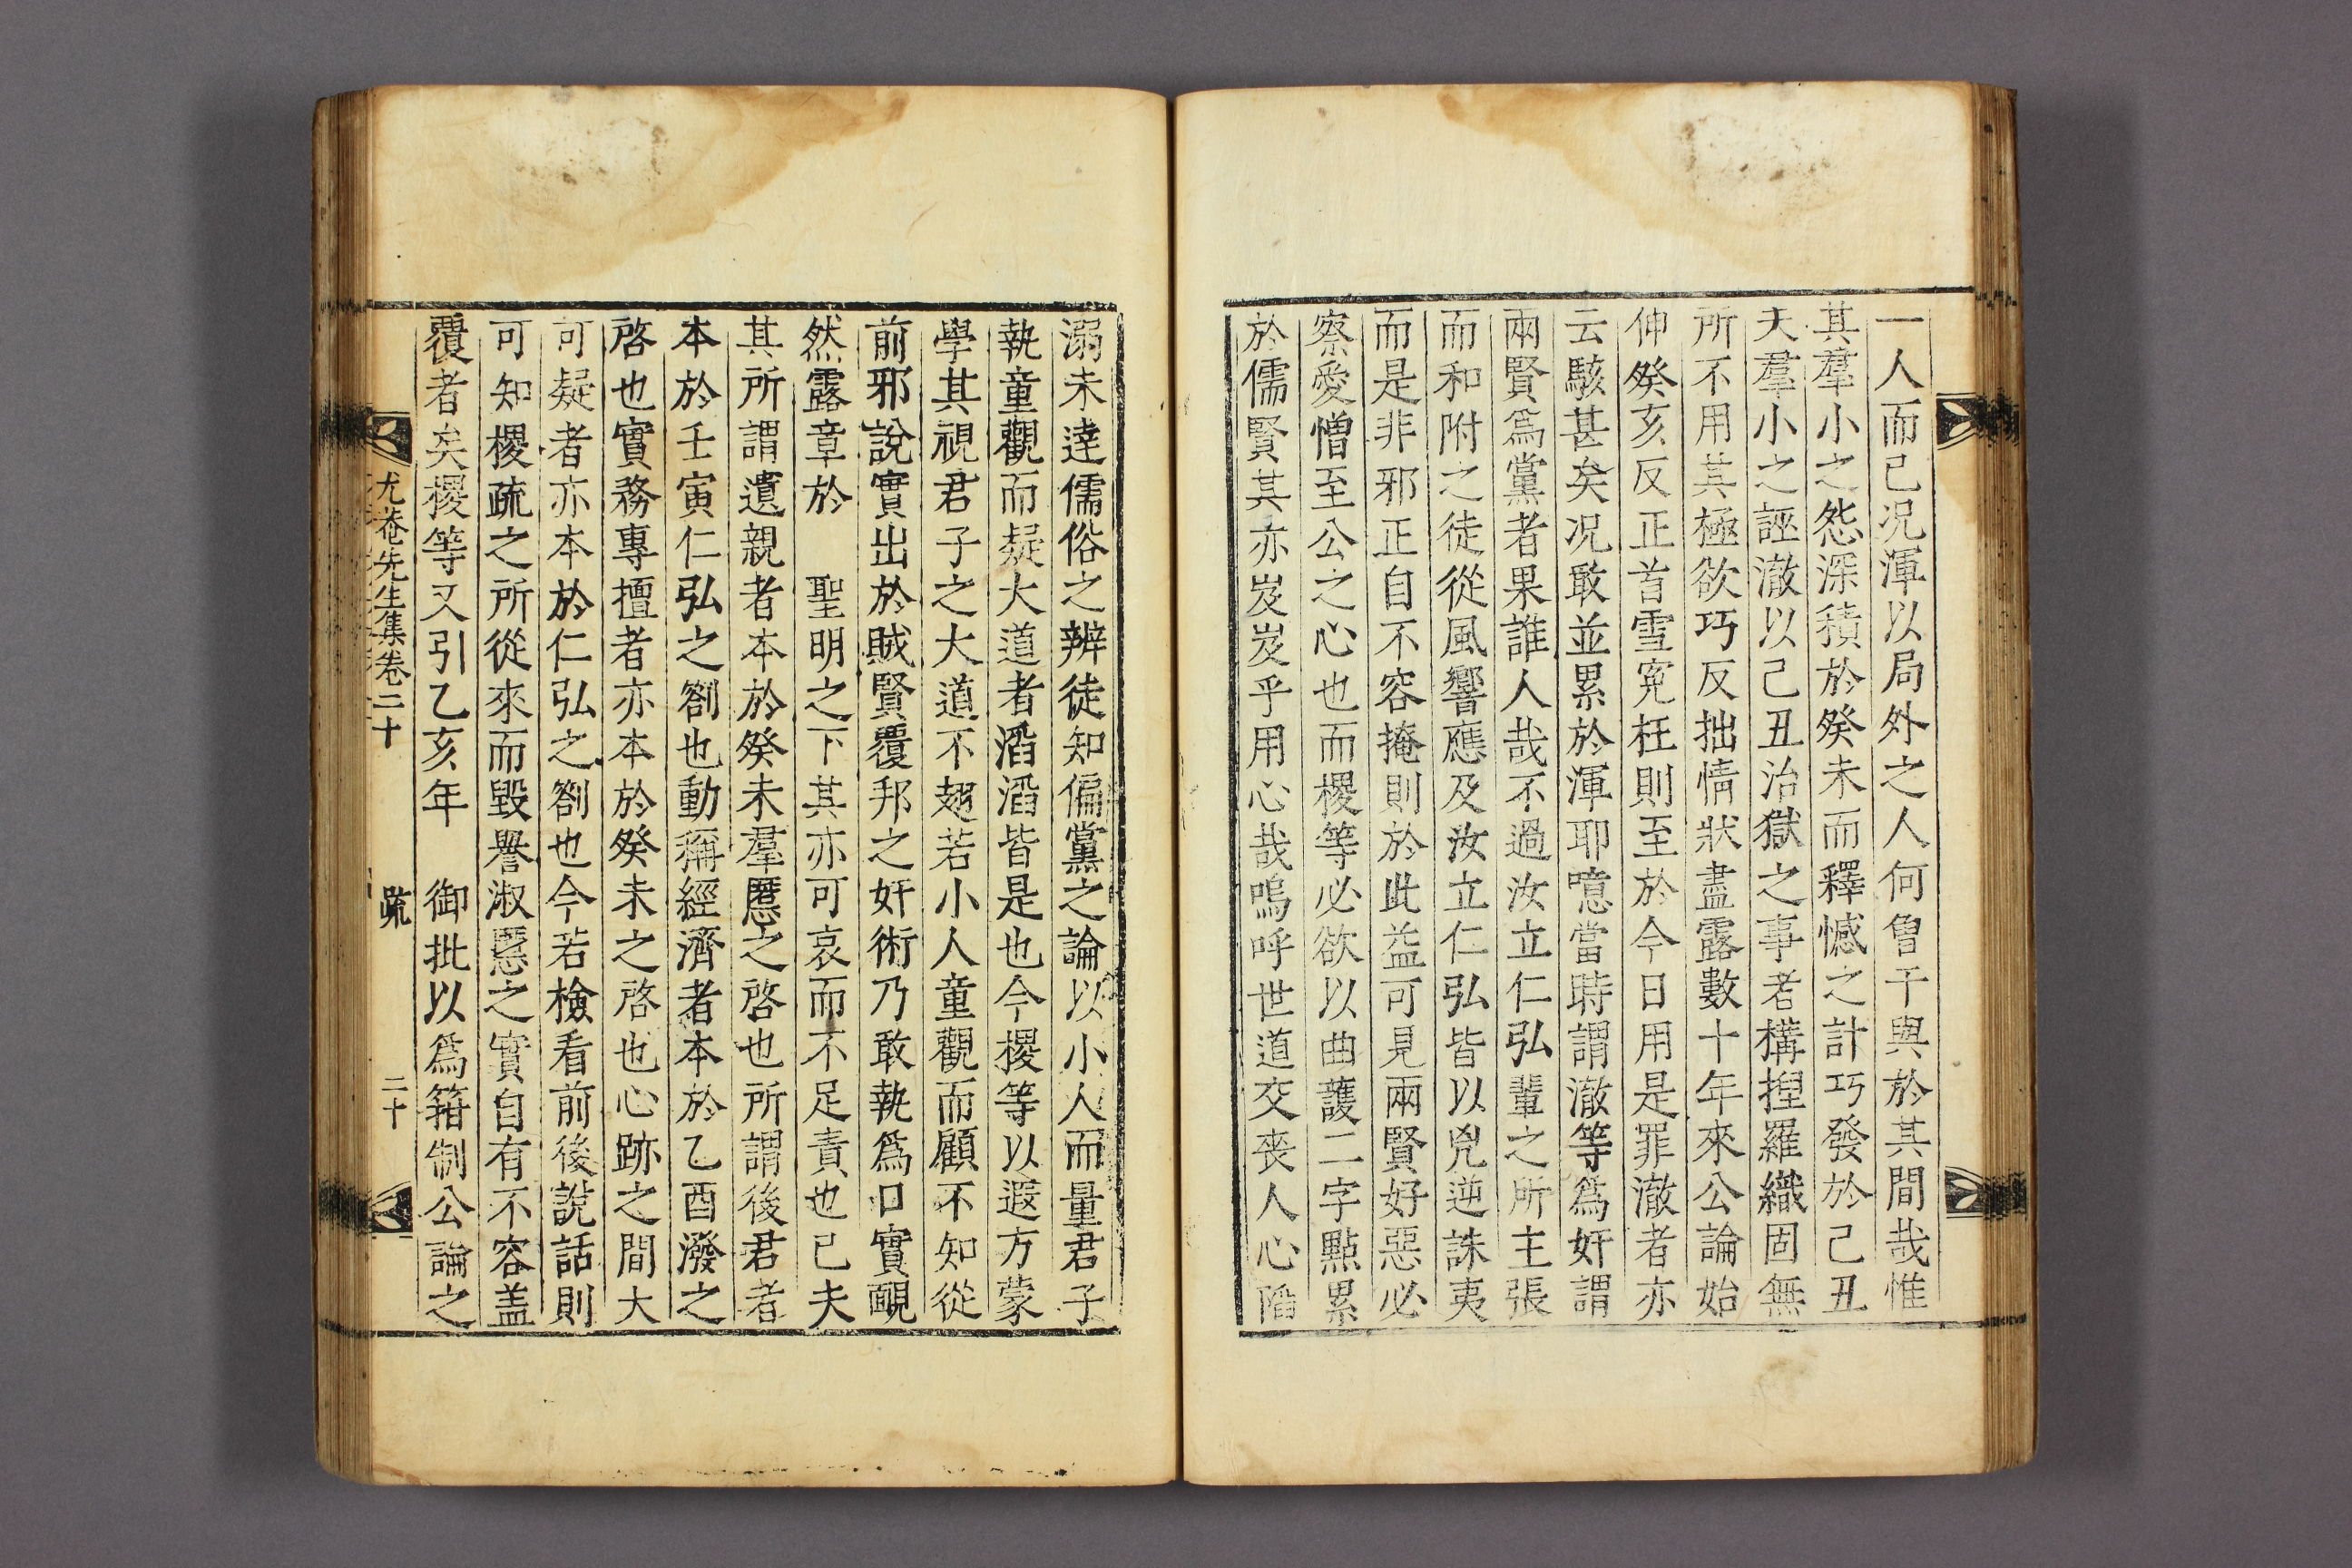 一人而已况渾以局外之人何曾干與於其間哉惟
其羣小之怨深積於癸未而釋憾之計巧發於己丑
夫羣小之誣澈以己丑治獄之事者構揑羅織固無
所不用其極欲巧反拙情狀盡露數十年來公論始
伸癸亥反正首雪寃枉則至於今日用是罪澈者亦
云駭甚矣况敢並累於渾耶噫當時謂澈等爲奸謂
兩賢爲黨者果誰人哉不過汝立仁弘輩之所主張
而和附之徒從風響應及汝立仁弘皆以兇逆誅夷
而是非邪正自不容掩則於此益可見兩賢好惡必
察愛憎至公之心也而㮨等必欲以曲護二字點累
於儒賢其亦岌岌乎用心哉嗚呼世道交喪人心陷
溺未達儒俗之辨徒知偏黨之論以小人而量君子
執童觀而疑大道者滔滔皆是也今㮨等以遐方蒙
學其視君子之大道不趐若小人童觀而顧不知從
前邪說實出於賊賢覆邦之奸術乃敢執爲口實靦
然露章於　聖明之下其亦可哀而不足責也已夫
其所謂遺親者本於癸未羣慝之啓也所謂後君者
本於壬寅仁弘之劄也動稱經濟者本於乙酉潑之
啓也實務專擅者亦本於癸未之啓也心跡之間大
可疑者亦本於仁弘之劄也今若檢看前後說話則
可知㮨疏之所從來而毀譽淑慝之實自有不容盖
覆者矣㮨等又引乙亥年　御批以爲箝制公論之
尤菴先生集卷二十　疏　二十